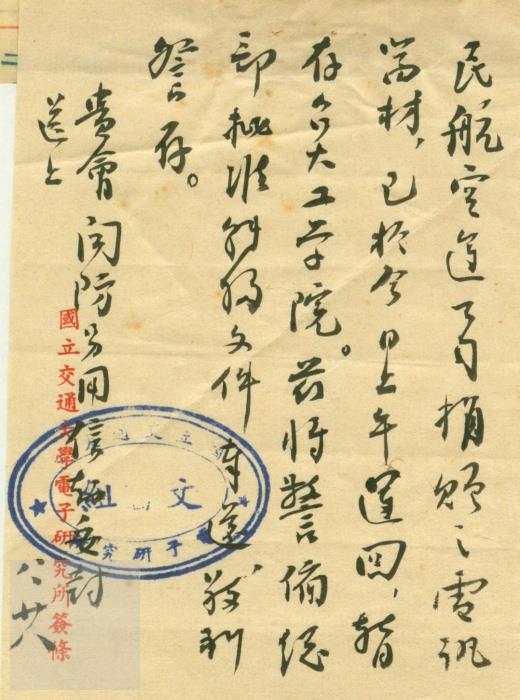 民航空運公司捐贈之電訊
器材,已於今日上午運回,暫
存台大工学院。茲將警備總
部批准解嚴文件奉送,敬列
詧存。
貴會関防另用信封密封
送上
八、廿八
國立交通大學電子研究所簽條
文 組
子研究